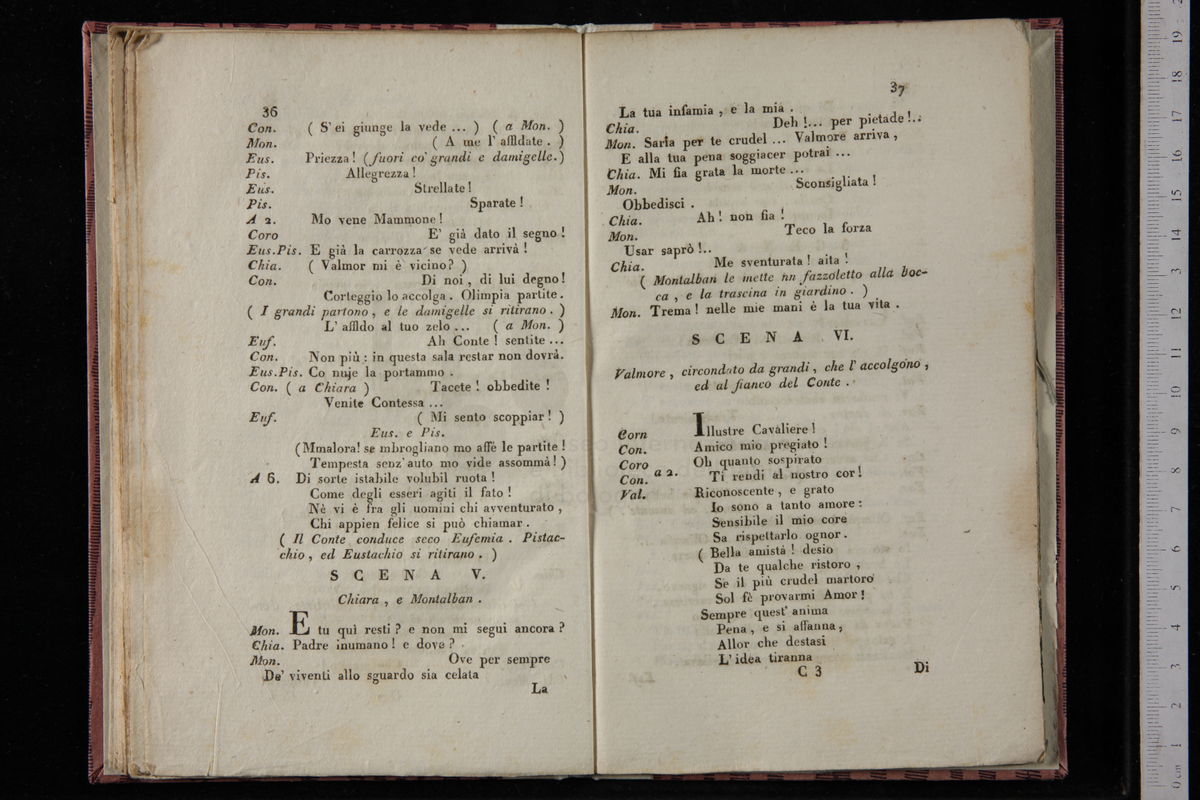 36
Con. ( S' ei giunge la vede ... ) ( a Mon. )
Mon. ( A me l' affido . )
Eus. Priezza ! (fuori co' grandi e damigelle.)
Pis. Allegrezza !
Eus. Strellate !
Pis. Sparate !
A 2. Mo vene Mammone !
Coro E' già dato il segno !
Eus.Pis. E già la carrozza se vede arrivà !
Chia. ( Valmor mi è vicino? )
Con. Di noi , di lui degno !
Corteggio lo accolga . Olimpia partite .
( I grandi partono , e le damigelle si ritirano . )
L' affido al tuo zelo ... ( a Mon. )
Euf. Ah Conte ! sentite ...
Con. Non più : in questa sala restar non dovrà.
Eus.Pis. Co nuje la portammo .
Con. ( a Chiara ) Tacete ! obbedite !
Venite Contessa ...
Euf. ( Mi sento scoppiar ! )
Eus. e Pis.
(Mmalora! se mbrogliano mo affè le partite !
Tempesta senz' auto mo vide assommà ! )
A 6. Di sorte istabile volubil ruota !
Come degli esseri agiti il fato !
Nè vi è fra gli uomini chi avventurato ,
Chi appien felice si può chiamar .
( Il Conte conduce seco Eufemia . Pistac-
chio , ed Eustachio si ritirano . )
SCENA V.
Chiara , e Montalban .
Mon. E tu quì resti ? e non mi segui ancora ?
Chia. Padre inumano ! e dove ?
Mon. Ove per sempre
De' viventi allo sguardo sia celata
La
37
La tua infamia , e la mia .
Chia. Deh !... per pietade !..
Mon. Sarla per te crudel ... Valmore arriva ,
E alla tua pena soggiacer potrai ...
Chia. Mi fia grata la morte ...
Mon. Sconsigliata !
Obbedisci .
Chia. Ah ! non fia !
Mon. Teco la forza
Usar saprò !..
Chia. Me sventurata ! aita !
( Montalban le mette un fazzoletto alla boc-
ca , e la trascina in giardino . )
Mon. Trema ! nelle mie mani è la tua vita .
SCENA VI.
Valmore , circondato da grandi , che l' accolgono ,
ed al fianco del Conte .
Corn Illustre Cavaliere !
Con. Amico mio pregiato !
Coro Oh quanto sospirato
Con. a 2. Ti rendi al nostro cor !
Val. Riconoscente , e grato
Io sono a tanto amore :
Sensibile il mio core
Sa rispettarlo ognor .
( Bella amistà ! desio
Da te qualche ristoro ,
Se il più crudel martoro
Sol fè provarmi Amor !
Sempre quest' anima
Pena , e si affanna ,
Allor che destasi
L' idea tiranna
C 3
Di